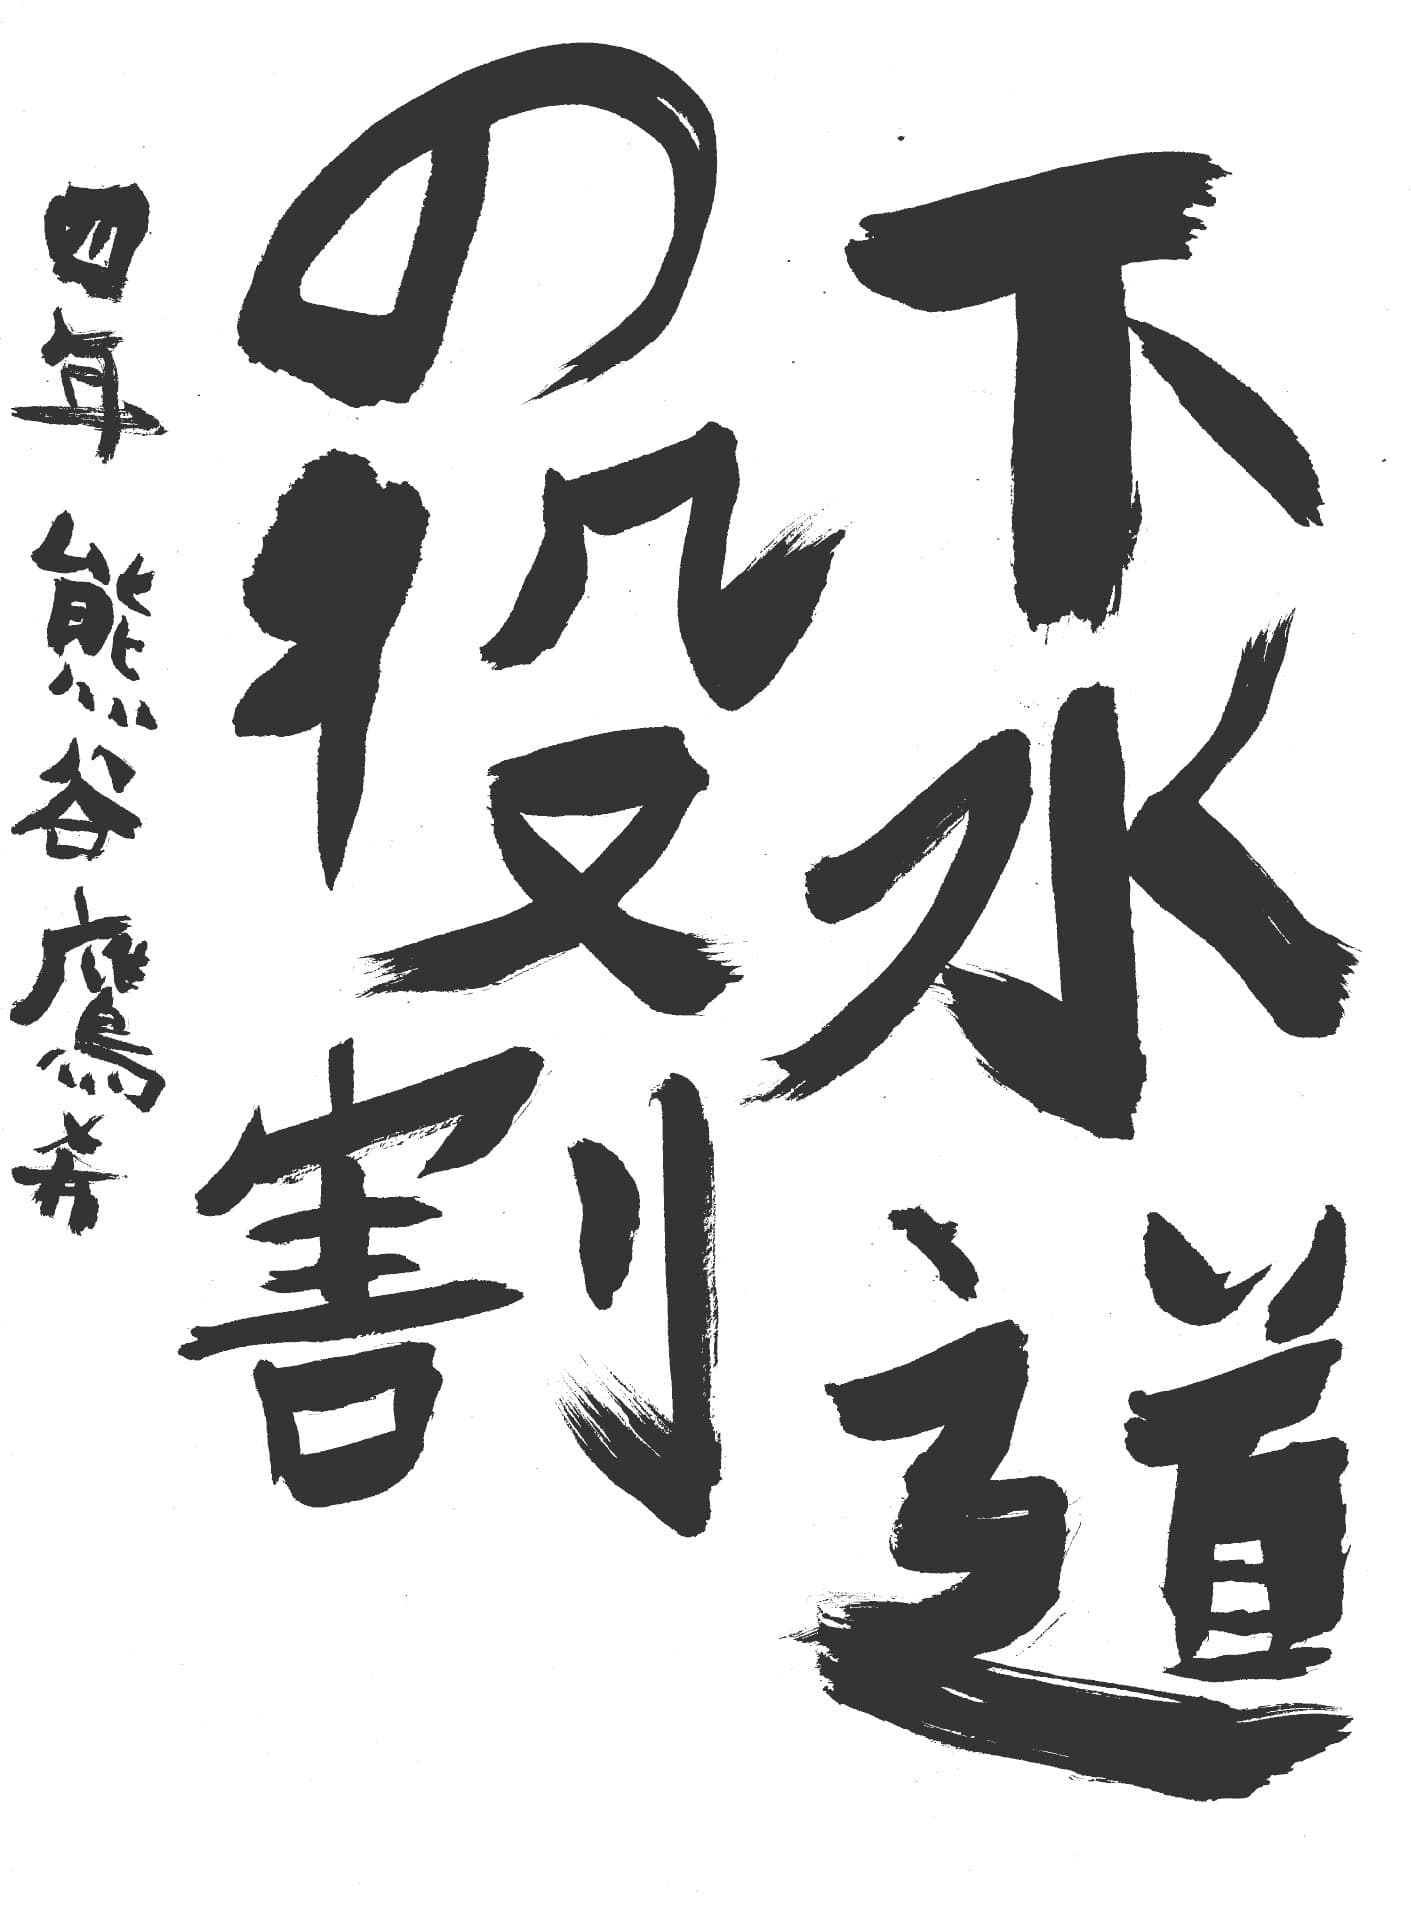 下水道
の役割
四年 熊谷鷹希